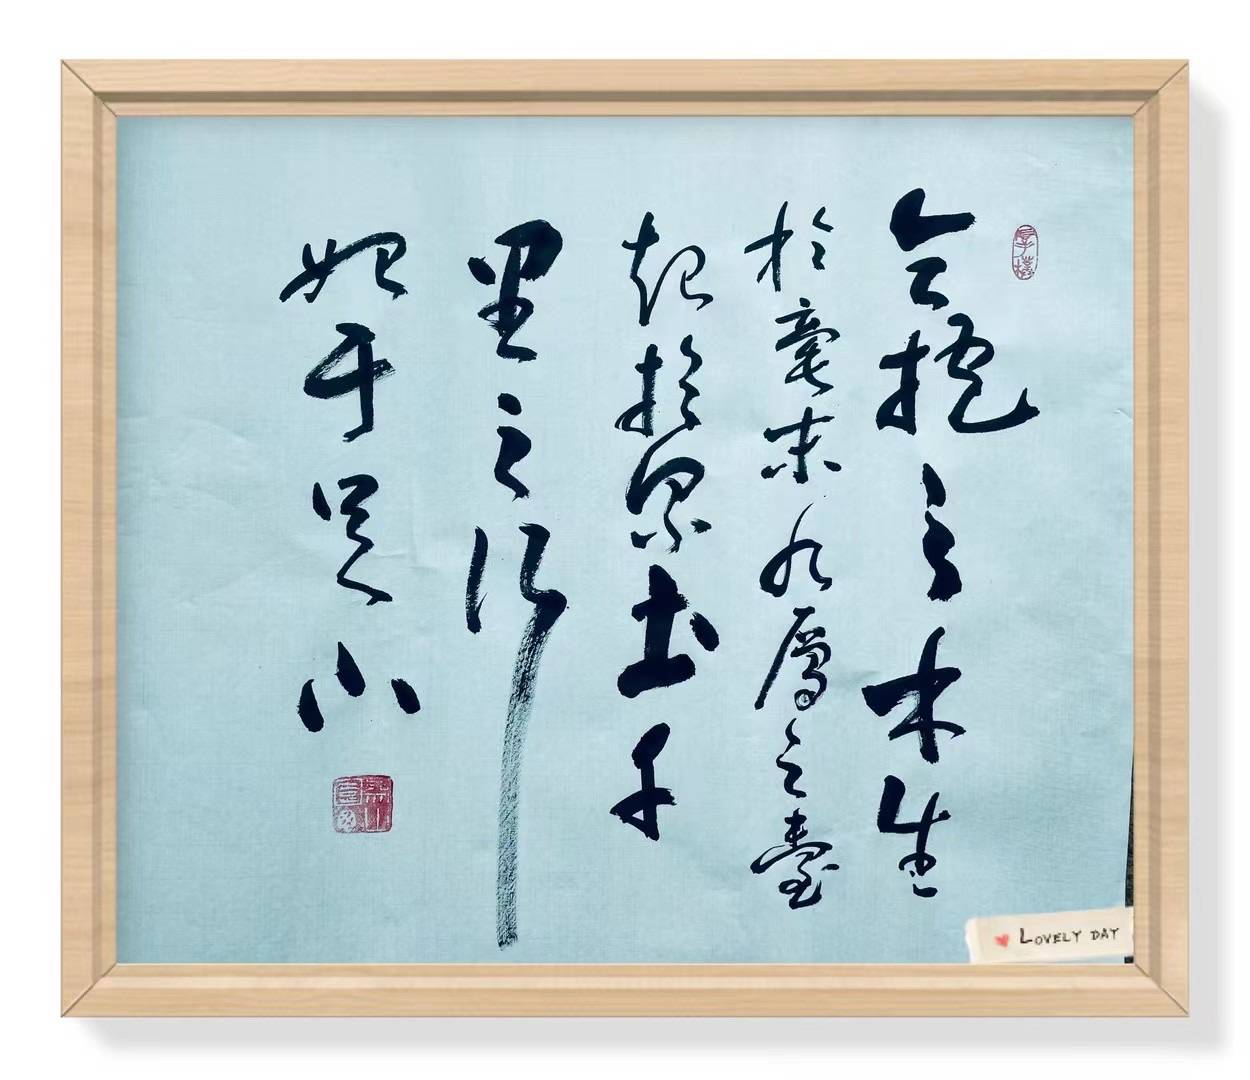 合抱之木生
於毫末九層之臺
起於累土千
里之行
始于足下
LOVELY DAY